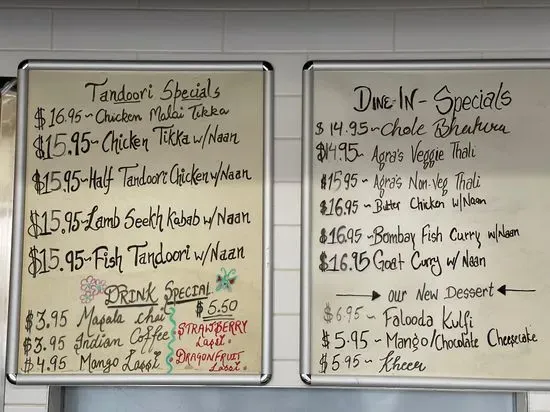 Tandoori Specials
$16.95~Chicken Malai Tikka
$15.95~Chicken Tikka w/Naan
$15.95~Half Tandoori Chicken w/Naan
$15.95~Lamb Seekh Kabab w/Naan
$15.95~Fish Tandoori w/Naan
DRINK SPECIAL
$3.95 Masala chai
$3.95 Indian Coffee
$4.95 Mango Lassi
$5.50
STRAWBERRY
Lassi
DRAGONFRUIT
Lassi
DINE-IN-Specials
$14.95~Chole Bhatura
$14.95~Agra's Veggie Thali
$15.95~Agra's Non-Veg Thali
$16.95~Butter Chicken w/Naan
$16.95~Bombay Fish Curry w/Naan
$16.95~Goat Curry w/Naan
our New Dessert
$6.95~ Falooda Kulfi
$5.95~Mango/Chocolate Cheesecake
$5.95~Kheer